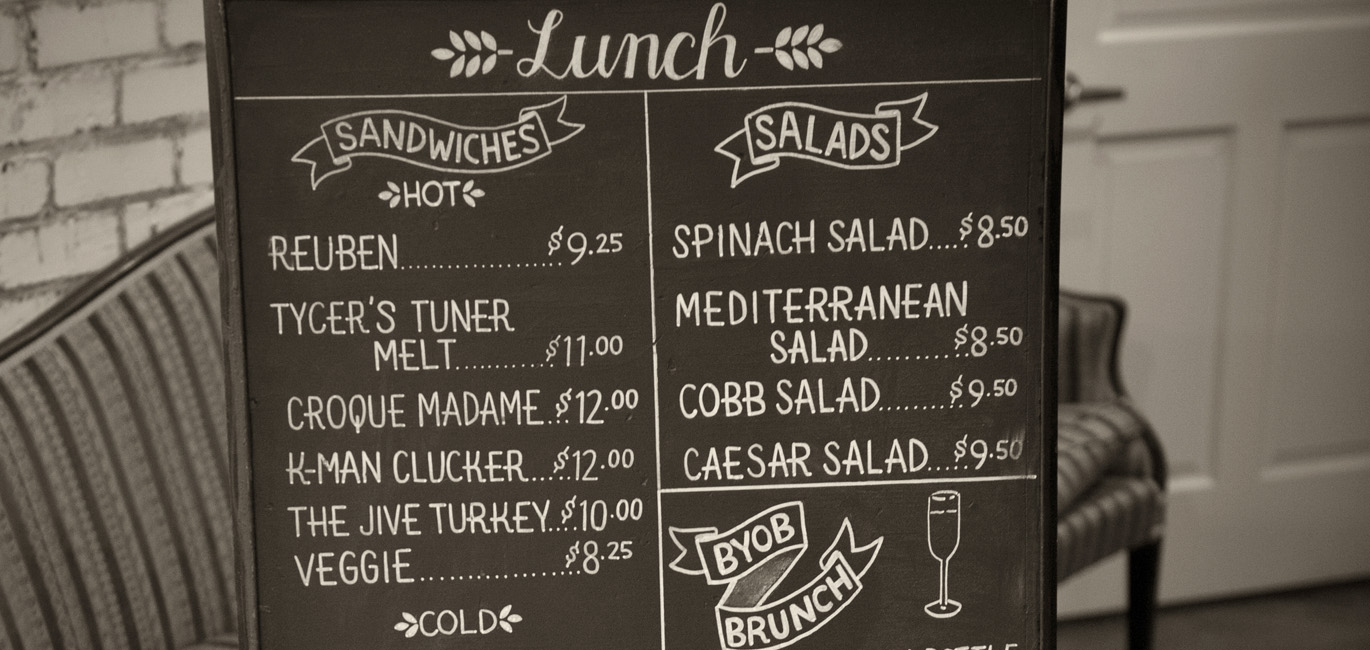 Lunch
SANDWICHES
HOT
REUBEN....................$9.25
TYCER'S TUNER
MELT...........$11.00
CROQUE MADAME..$12.00
K-MAN CLUCKER....$12.00
THE JIVE TURKEY..$10.00
VEGGIE.................$8.25
COLD
SALADS
SPINACH SALAD....$8.50
MEDITERRANEAN
SALAD.........$8.50
COBB SALAD.........$9.50
CAESAR SALAD....$9.50
BYOB
BRUNCH